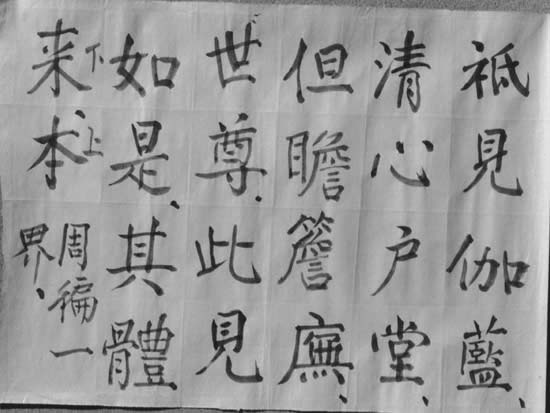 祗見伽藍、
清心户堂、
但瞻簷廡、
世尊、此見
如是、其體
来下、本上
周徧一
界、